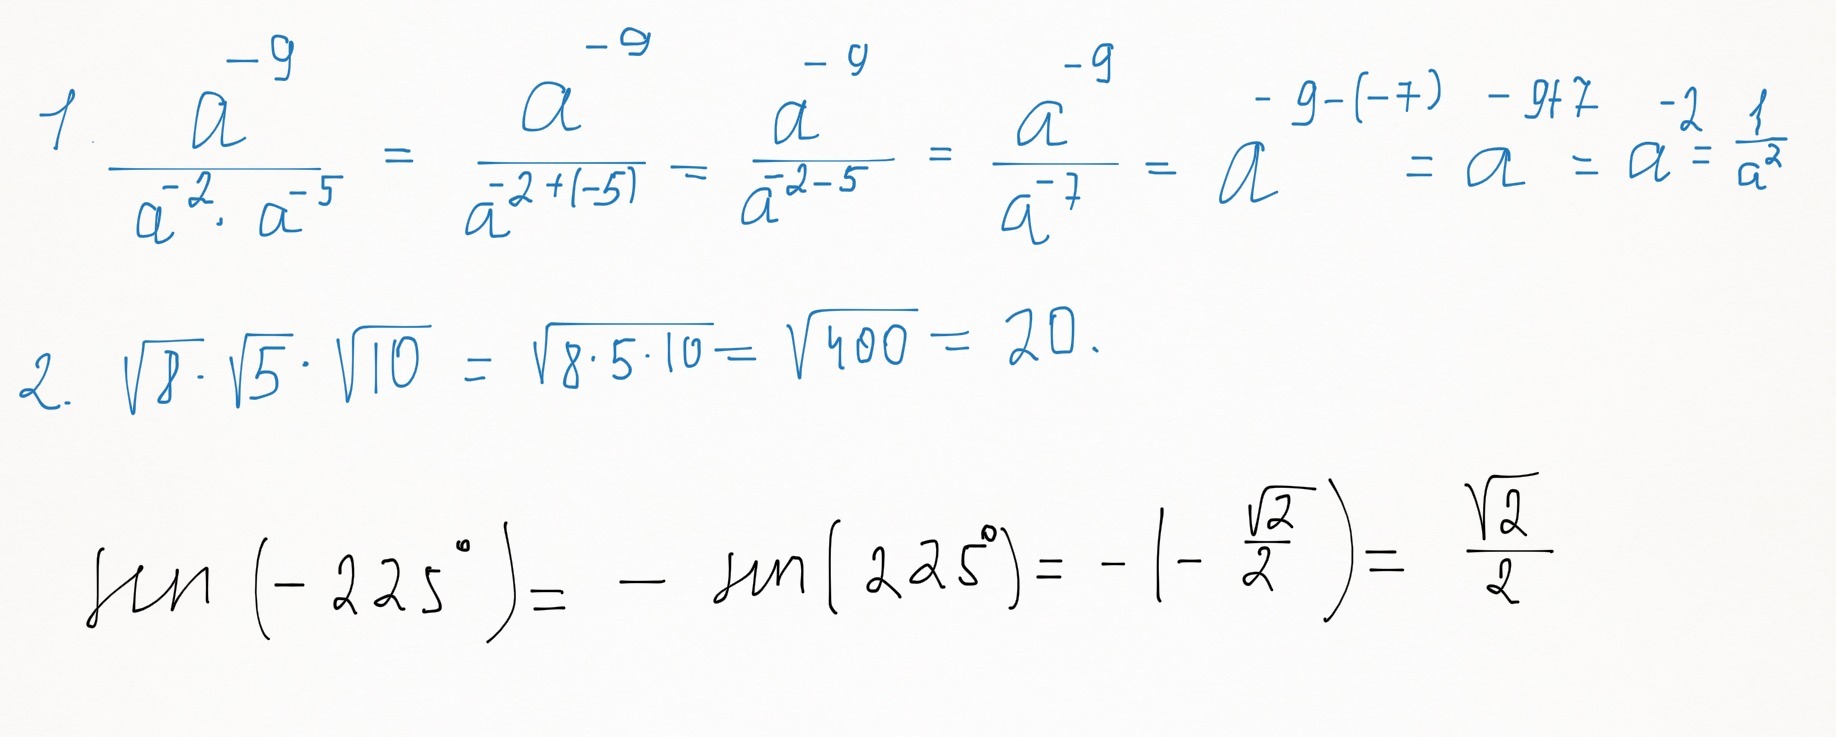 1. a^{-9}/(a^{-2} · a^{-5}) = a^{-9}/a^{-2+(-5)} = a^{-9}/a^{-2-5} = a^{-9}/a^{-7} = a^{-9-(-7)} = a^{-9+7} = a^{-2} = 1/a^{2}
2. √8 · √5 · √10 = √(8·5·10) = √400 = 20.
sin(-225°) = - sin(225°) = -(-√2/2) = √2/2